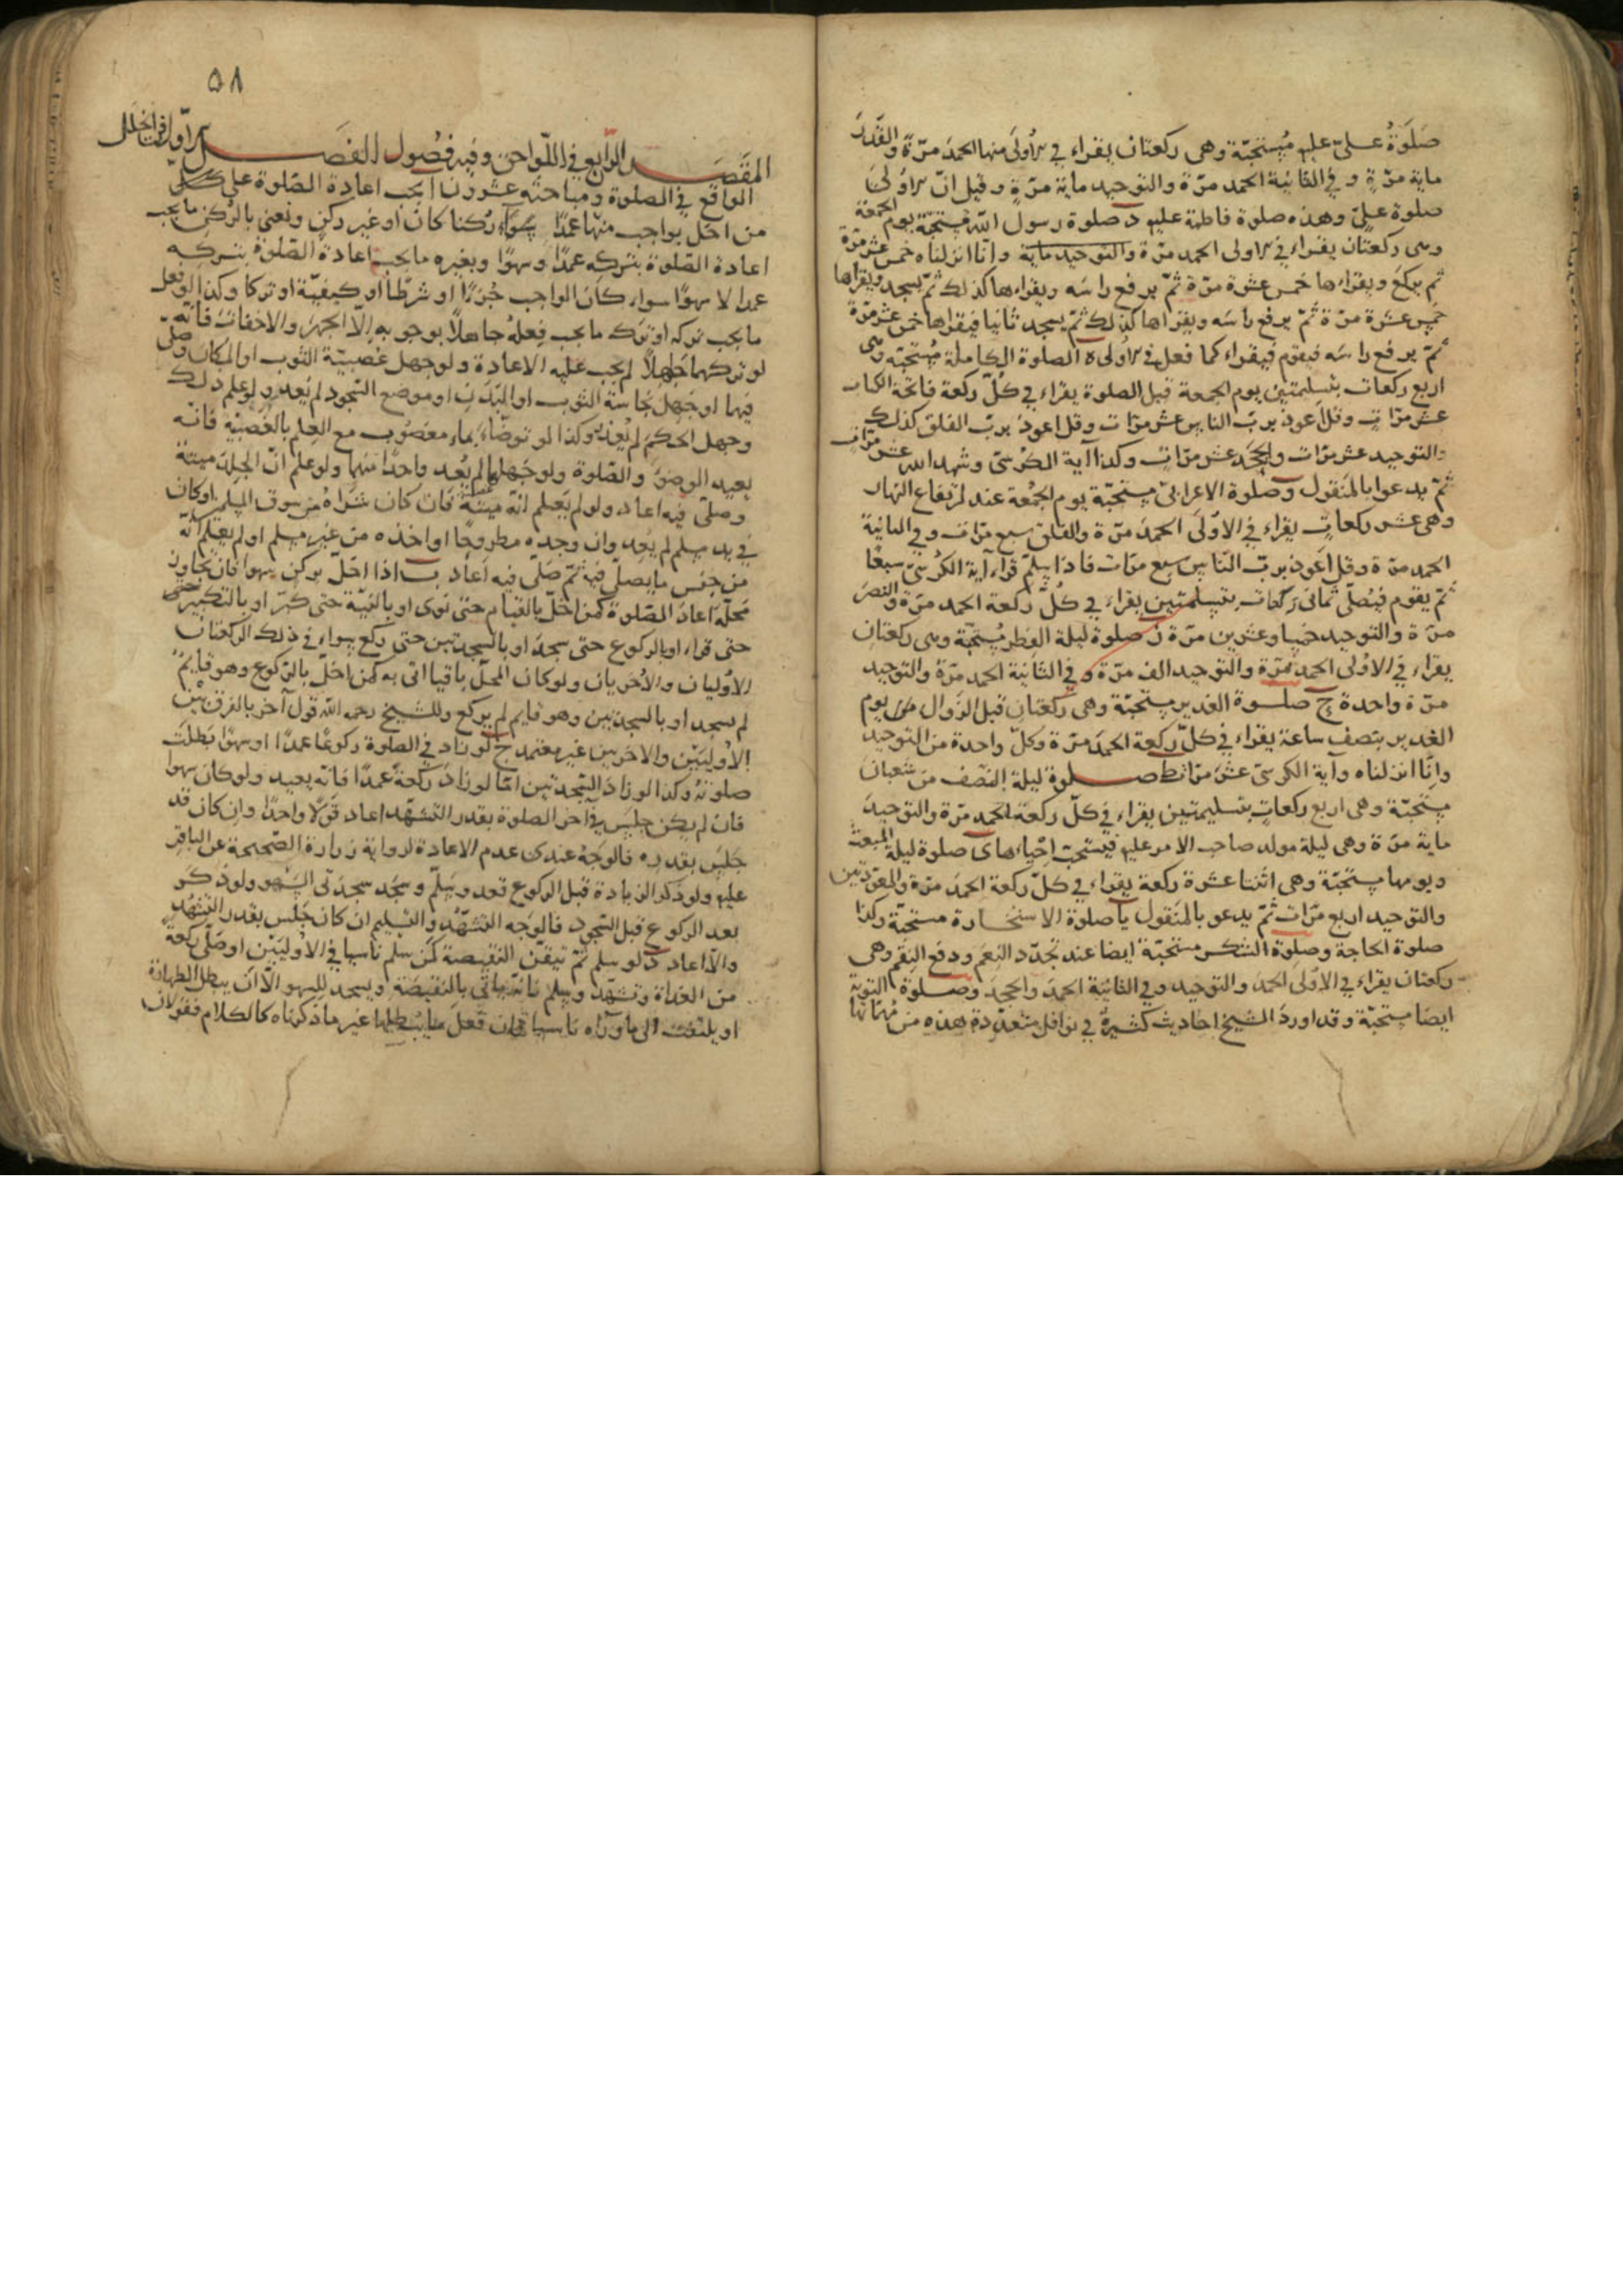 صلوة علىّ عليه مستحبّة وهى ركعتان يقراء في الاولى منهما الحمد مرّة والقدر
ماية مرّة وفي الثانية الحمد مرّة والتوحيد ماية مرّة وقيل انّ الاولى
صلوة علىّ وهذه صلوة فاطمة عليها د صلوة رسول الله مستحبّة يوم الجمعة
وهى ركعتان يقراء في الاولى الحمد مرّة والتوحيد ماية وانّا انزلناه خمس عشر مرّة
ثم يركع ويقراءها خمس عشرة مرّة ثمّ يرفع راسه ويقراءها كذلك ثمّ يسجد ويقراها
خمس عشرة مرّة ثمّ يرفع راسه ويقراها كذلك ثمّ يسجد ثانيا فيقراها خمس عشر مرّة
ثمّ يرفع راسه فيقوم فيقراء كما فعل في الاولى ه الصلوة الكاملة مستحبّة وهى
اربع ركعات بتسليمتين يوم الجمعة قبل الصلوة يقراء في كلّ ركعة فاتحة الكتاب
عشر مرّات وقل اعوذ بربّ الناس عشر مرّات وقل اعوذ بربّ الفلق كذلك
والتوحيد عشر مرّات والجحد عشر مرّات وكذا آية الكرسىّ وشهد الله عشر مرّات
ثمّ يدعوا بالمنقول و صلوة الاعرابىّ مستحبّة يوم الجمعة عند ارتفاع النهار
وهى عشر ركعات يقراء في الاولى الحمد مرّة والفلق سبع مرّات وفي الثانية
الحمد مرّة وقل اعوذ بربّ النّاس سبع مرّات فاذا سلّم قراء آية الكرسىّ سبعًا
ثمّ يقوم فيصلّى ثمانى ركعات بتسليمتين يقراء في كلّ ركعة الحمد مرّة والنصر
مرّة والتوحيد خمسا وعشرين مرّة ز صلوة ليلة الفطر مستحبّة وهى ركعتان
يقراء في الاولى الحمد مرّة والتوحيد الف مرّة وفي الثانية الحمد مرّة والتوحيد
مرّة واحدة ح صلوة الغدير مستحبّة وهى ركعتان قبل الزوال من يوم
الغدير بنصف ساعة يقراء في كلّ ركعة الحمد مرّة وكلّ واحدة من التوحيد
وانّا انزلناه وآية الكرسىّ عشر مرّات ط صلوة ليلة النصف من شعبان
مستحبّة وهى اربع ركعات بتسليمتين يقراء في كلّ ركعة الحمد مرّة والتوحيد
ماية مرّة وهى ليلة مولد صاحب الامر عليه فيستحبّ احياءها ى صلوة ليلة المبعث
ويومها مستحبّة وهى اثنتا عشرة ركعة يقراء في كلّ ركعة الحمد مرّة والمعوّذتين
والتوحيد اربع مرّات ثمّ يدعو بالمنقول يا صلوة الاستخارة مستحبّة وكذا
صلوة الحاجة وصلوة الشكر مستحبّة ايضا عند تجدّد النعم ودفع النقم وهى
ركعتان يقراء في الاولى الحمد والتوحيد وفي الثانية الحمد والجحد وصلوة التوبة
ايضا مستحبّة وقد اورد الشيخ احاديث كثيرة في نوافل متعدّدة هذه من مهمّاتها
٥٨
المقصد الرّابع في اللّواحق وفيه فصول الفصل الاوّل في الخلل
الواقع في الصلوة ومباحثه عشرون ا يجب اعادة الصّلوة على كلّ
من اخلّ بواجب منها عمدًا سواء ركنا كان او غير ركن ونعنى بالركن ما يجب
اعادة الصّلوة بتركه عمدًا وسهوًا وبغيره ما يجب اعادة الصّلوة بتركه
عمدا لا سهوًا سواء كان الواجب جزءًا او شرطًا او كيفيّة او تركا وكذا لو فعل
ما يجب تركه او ترك ما يجب فعله جاهلا بوجوبه الّا الجهر والاخفات فانّه
لو تركهما جهلا لم يجب عليه الاعادة ولو جهل غصبيّة الثوب او المكان وصلّى
فيها او جهل نجاسة الثوب او البدن او موضع السّجود لم يعد ولو علم ذلك
وجهل الحكم لم يعذر وكذا لو توضّاء بماء مغصوب مع العلم بالغصبيّة فانّه
يعيد الوضوء والصّلوة ولو جهلها لم يعد واحدًا منهما ولو علم انّ الجلد ميتة
وصلّى فيه اعاد ولو لم يعلم انّه ميتة فان كان شراه من سوق المسلمين او كان
في يد مسلم لم يعد وان وجده مطروحًا او اخذه من غير مسلم او لم يعلم انّه
من جنس ما يصلّى فيه ثمّ صلّى فيه اعاد ب اذا اخلّ بركن سهوا فان تجاوز
محلّه اعاد الصّلوة كمن اخلّ بالقيام حتى نوى او بالنيّة حتى كبّر او بالتكبير
حتى قراء او بالركوع حتى سجد او بالسجدتين حتى ركع سواء في ذلك الركعتان
الاوليان والاخريان ولو كان المحلّ باقيا اتى به كمن اخلّ بالركوع وهو قايم
لم يسجد او بالسجدتين وهو قايم لم يركع وللشيخ رحمه الله قول آخر بالفرق بين
الاوليتين والاخريين غير معتمد ج لو زاد في الصلوة ركوعًا عمدًا او سهوًا بطلت
صلوته وكذا لو زاد السّجدتين امّا لو زاد ركعة عمدًا فانّه يعيد ولو كان سهوا
فان لم يكن جلس في آخر الصلوة بقدر التشهّد اعاد قولًا واحدًا وان كان قد
جلس بقدره فالوجه عندى عدم الاعادة لرواية زرارة الصّحيحة عن الباقر
عليه ولو ذكر الزيادة قبل الركوع قعد وسلّم وسجد سجدتى السّهو ولو ذكر
بعد الركوع قبل السّجود فالوجه التشهّد والتسليم ان كان جلس بقدر التشهّد
والّا اعاد د لو سلّم ثمّ تيقّن النقيصة كمن سلم ناسيا في الاوليتين او صلّى ركعة
من الغداة وتشهّد وسلم فانّه ياتى بالنقيصة ويسجد للسهو الّا ان يبطل الطهارة
او يلتفت الى ماوراه ناسيا فان فعل ما يبطلها غير ما ذكرناه كالكلام فقولان